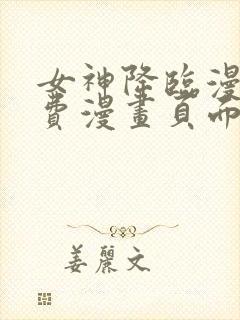 女神降臨漫
費漫畫頁面
姜麗文